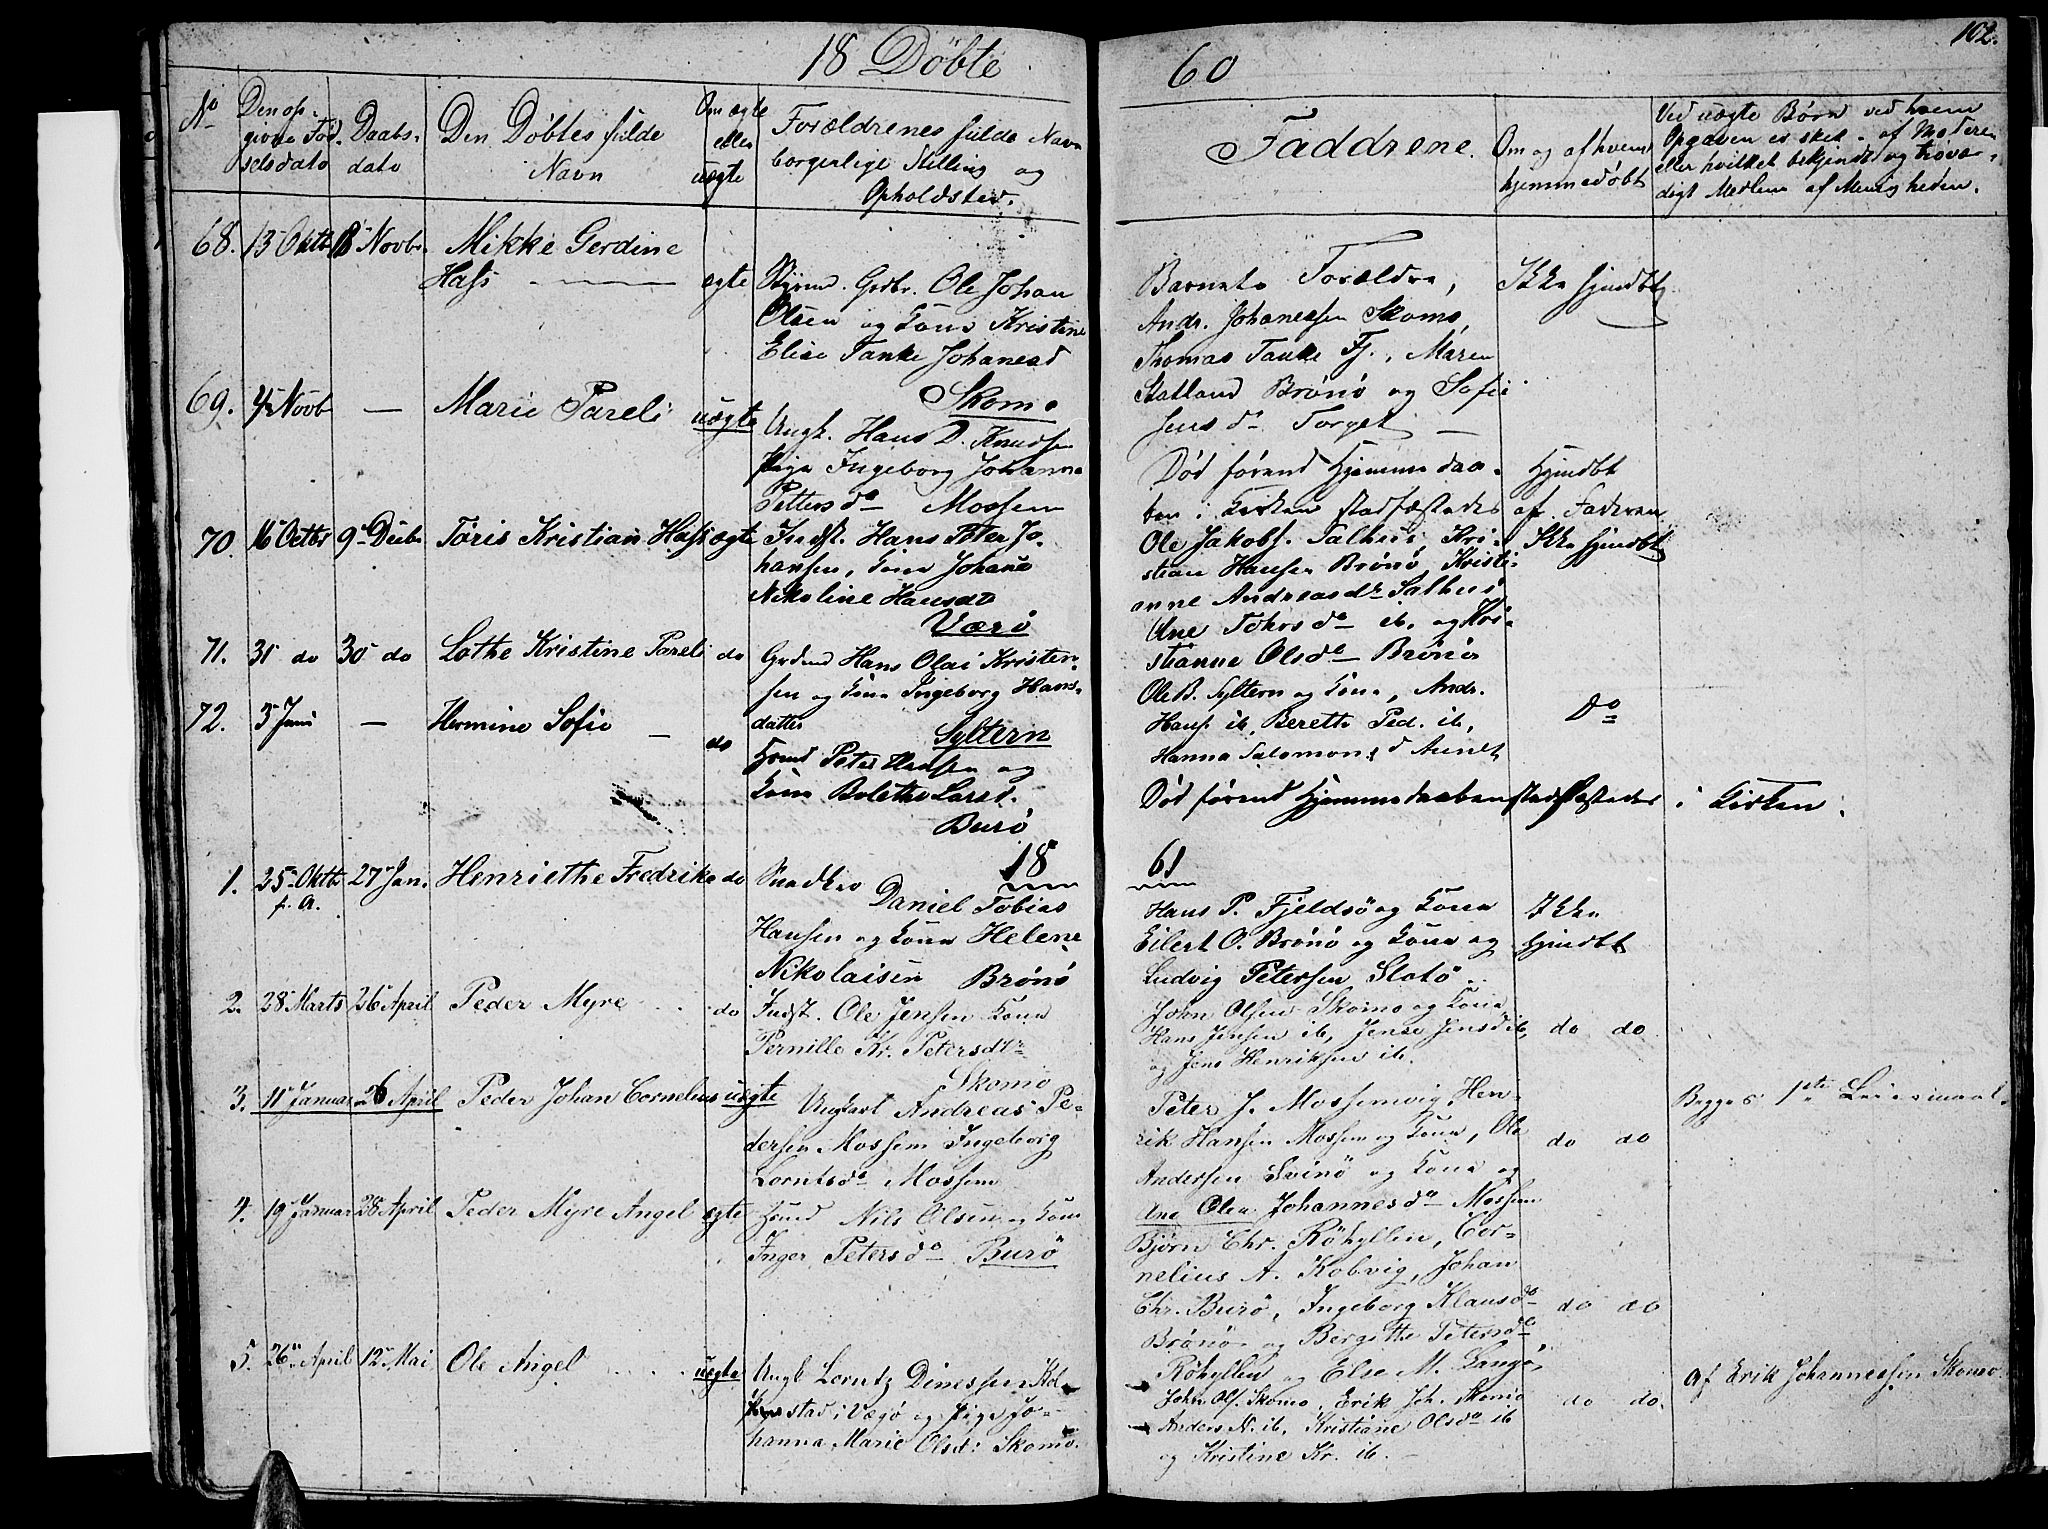 18 Døbte
60
102.
No
Den op-
givne Fød
selsdato
Daabs-
dato
Den Døbtes fulde
Navn
Om ægte
eller
uægte
Forældrenes fulde Navn
borgerlige Stilling og
Opholdsted.
Faddrene.
Om og af hvem
hjemmedøbt
Ved uægte Børn ved hvem
Opgaven er skeet - af Moderen
eller hvilket bekjendt og trovær-
digt Medlem af Menigheden.
68. 13 Oktb 18 Novbr Mikke Gerdine
Hass ægte
Grdbr. Ole Johan
Olsen og Kone Kristine
Elise Tanke Johanesd
Skomo
Barnets Forældre,
Andr. Johanessen Skomo,
Thomas Tanke Fj., Maren
Statland Brønø og Sofie
Jens dr Torget
Ikke hjmdbt
69. 4 Novb — Marie Pareli uægte
Ungk. Hans D. Knudsen
Pige Ingeborg Johanna
Petters da Mossem
Død førend Hjemmedaa-
ben i Kirken stadfæstedes
Hjmdbt
af Faderen
70. 16 Octbr 9 Decbr Tøris Kristian Hass ægte
Indst. Hans Peter Jo-
hansen, Kone Johane
Nikoline Hansdt
Værø
Ole Jakobs. Salhus, Kri-
stian Hansen Brønø, Kristi-
anne Andreasdr Salhus
Ane Tohrsda ib. og Kri-
stianne Olsda Brønø
Ikke hjmdbt
71. 31 do 30 do Lothe Kristine Pareli do
Grdmd Hans Olai Kristen-
sen og Kone Ingeborg Hans-
datter
Syltern
Ole B. Syltern og Kone, Andr.
Hans. ib, Berette Ped. ib,
Hanna Salomons d
Do
72. 3 Juni — Hermine Sofie — do
Peter Hansen og
Kone Bolethe Larsd.
Burø
Død førend Hjemmedaaben stadfæstedes i Kirken.
18 61
1. 25 Oktb 27 Jan. Henriethe Fredrike do
f. A.
Snedker
Daniel Tobias
Hansen og Kone Helene
Nikolaisen Brønø
Hans P. Fjeldsø og Kone
Eilert O. Brønø og Kone og
Ludvig Petersen Slotø.
Ikke
hjmdbt
2. 28 Marts 26 April Peder Myre do
Indst. Ole Jensen Kone
Pernille Kr. Petersdtr
Skomo
John Olsen Skomo og Kone
Hans Jensen ib, Jensd ib,
og Jens Henriksen ib.
do do
3. 11 Januar 26 April Peder Johan Cornelius uægte
Ungkarl Andreas Pe-
dersen Mossem Ingeborg
Lorntsda Mossem
Peter J. Mossemvig, Hen-
rik Hansen Mossem og Kone, Ole
Andersen Svinø og Kone og
Ane Olea Johannesda Mossem
do do
Begges 1ste Leiermaal.
4. 19 Januar 28 April Peder Myre Angel ægte
Nils Olsen og Kone
Inger Petersda Burø
Bjørn Chr. Røhyllen, Cor-
nelius A. Kobvig, Johan
Chr. Burø, Ingeborg Klausda
Brønø og Bergitte Petersda
Røhyllen og Else M. Langø.
do do
5. 26 April 12 Mai Ole Angel uægte
Ungk Lorntz Dinessen Hol-
stad i Vægø og Pige Jo-
hanna Marie Olsd: Skomo.
John Ols. Skomo, Erik Joh. Skomo
Anders N. ib. Kristiane Olsda ib
og Kristine Kr. ib.
do do.
Af Erik Johannessen Skomo